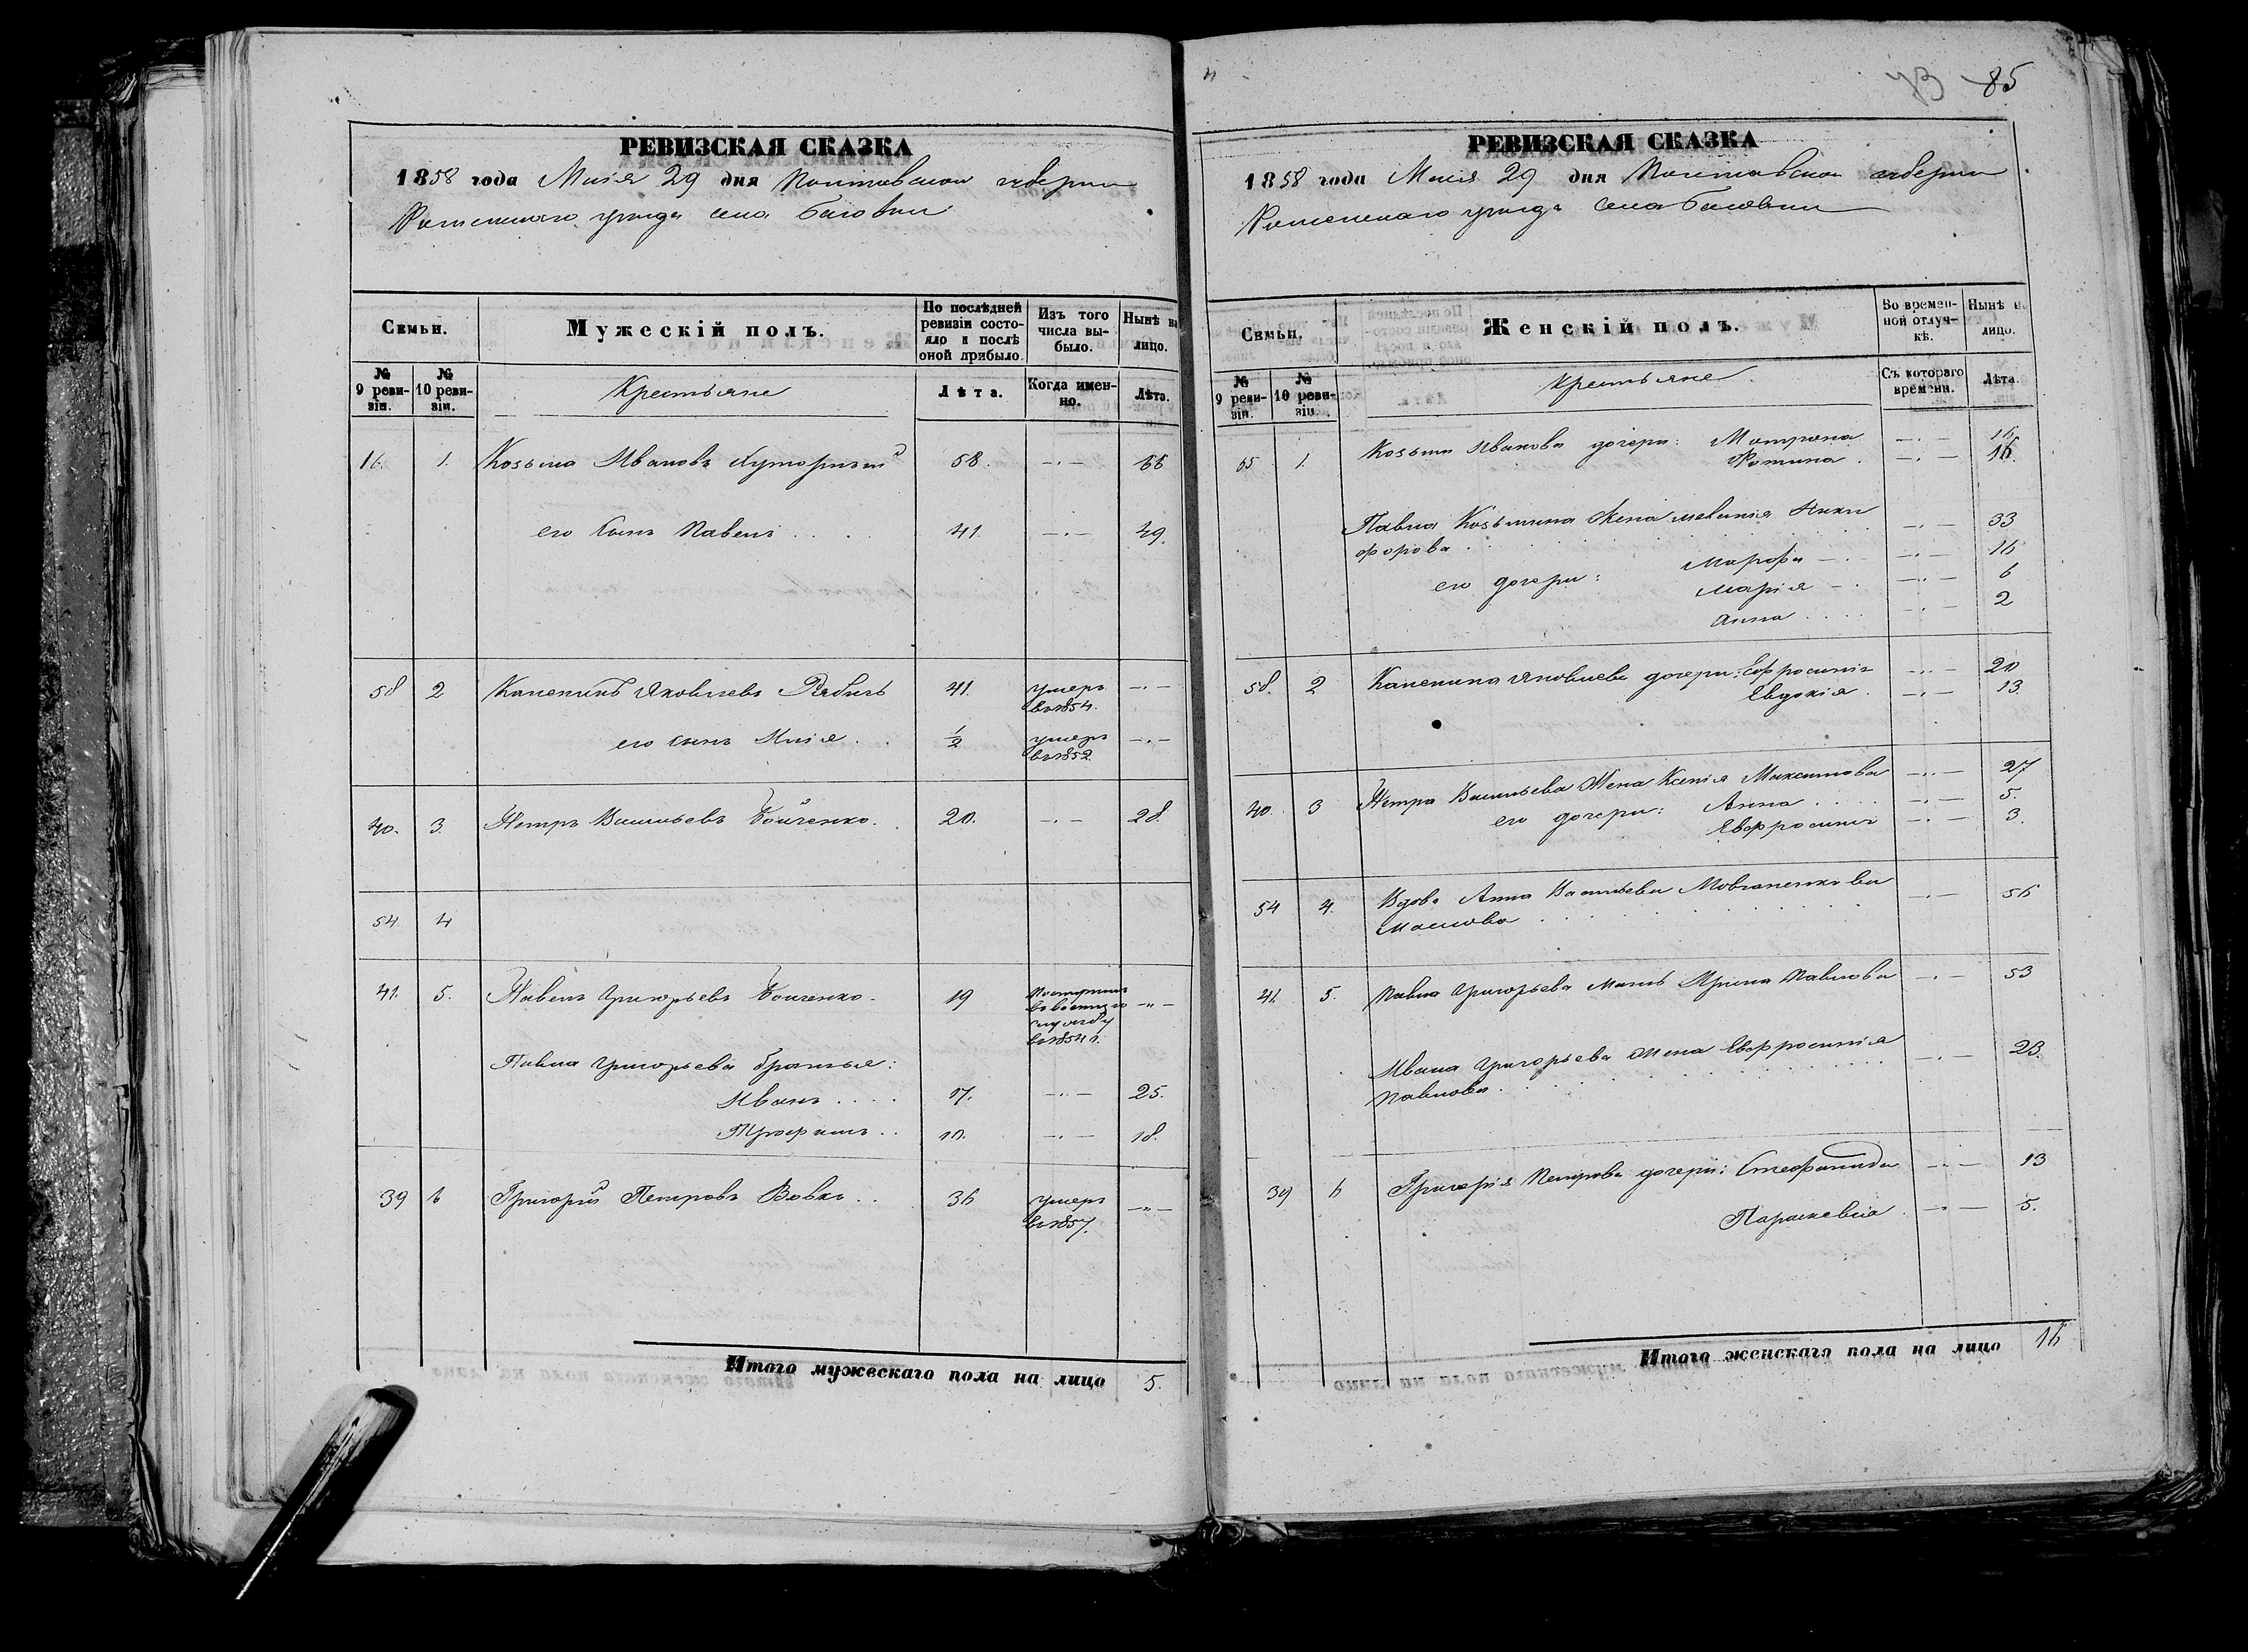 85
РЕВИЗСКАЯ СКАЗКА
1858 года Мая 29 дня Полтавской губернии
Роменскаго уезда села Баговки
Семьи.
Мужескій полъ.
По послѣдней ревизіи состояло и послѣ оной прибыло.
Изъ того числа выбыло.
Нынѣ на лицо.
№ 9 ревизіи.
№ 10 ревизіи.
Крестьяне
Лѣта.
Когда именно.
Лѣта.
16. 1. Козьма Ивановъ 58. 66
его сынъ Павелъ 41. 49.
58 2 Каленикъ Яковлевъ Рябычъ 41. умеръ въ 1854.
его сынъ Илія 1/2 умеръ въ 1852.
40. 3. Петръ Васильевъ Бойченко 20. 28.
54. 4
41. 5. Павелъ Григорьевъ Бойченко. 19 Поступилъ въ военную службу въ 1854 г.
Павла Григорьева братья:
Иванъ 17. 25.
Трофимъ 10. 18.
39 6 Григорій Петровъ Вовкъ 36 умеръ въ 1857.
Итого мужескаго пола на лицо 5.
РЕВИЗСКАЯ СКАЗКА
1858 года Мая 29 дня Полтавской губернии
Роменскаго уезда села Баговки
Семьи.
Женскій полъ.
Во временной отлучкѣ.
Нынѣ на лицо.
№ 9 ревизіи.
№ 10 ревизіи.
Крестьяне
Съ котораго времени.
Лѣта.
65 1. Козьмы Иванова дочери: Матрона 16.
Фотина 16.
Павла Козьмина жена Меланія Ники
форова 33
его дочери: Марфа 16
Марія 6
Анна 2
58. 2 Каленика Яковлева дочери: Ефросинія 20
Евдокія 13.
40. 3 Петра Васильева жена Ксенія Максимова 27
его дочери: Анна 5.
Евфросинія 3.
54 4. Вдова Анна Васильева 56
41. 5. Павла Григорьева мать Ирина Павлова 53
Ивана Григорьева жена Евфросинія 23.
Павлова
39 6 Григорія Петрова дочери: Стефанида 13
Параскевія 5.
Итого женскаго пола на лицо 16